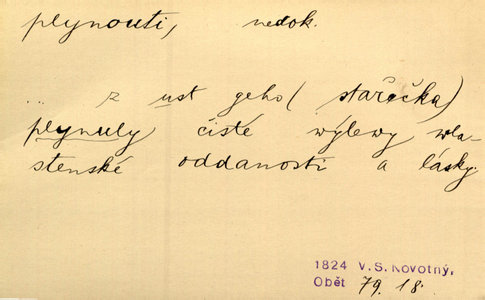 plynouti, nedok.
... z ust geho (stařečka)
plynuly čisté wýlewy wla-
stenské oddanosti a lásky.
1824 V.S. Novotný,
Obět 79. 18.